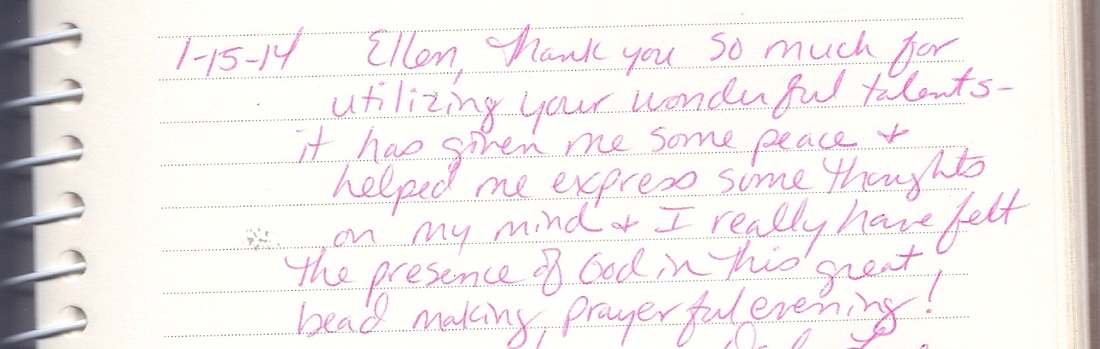 1-15-14 Ellen, Thank you so much for
utilizing your wonderful talents-
it has given me some peace &
helped me express some thoughts
on my mind & I really have felt
the presence of God in this great
bead making, prayerful evening!